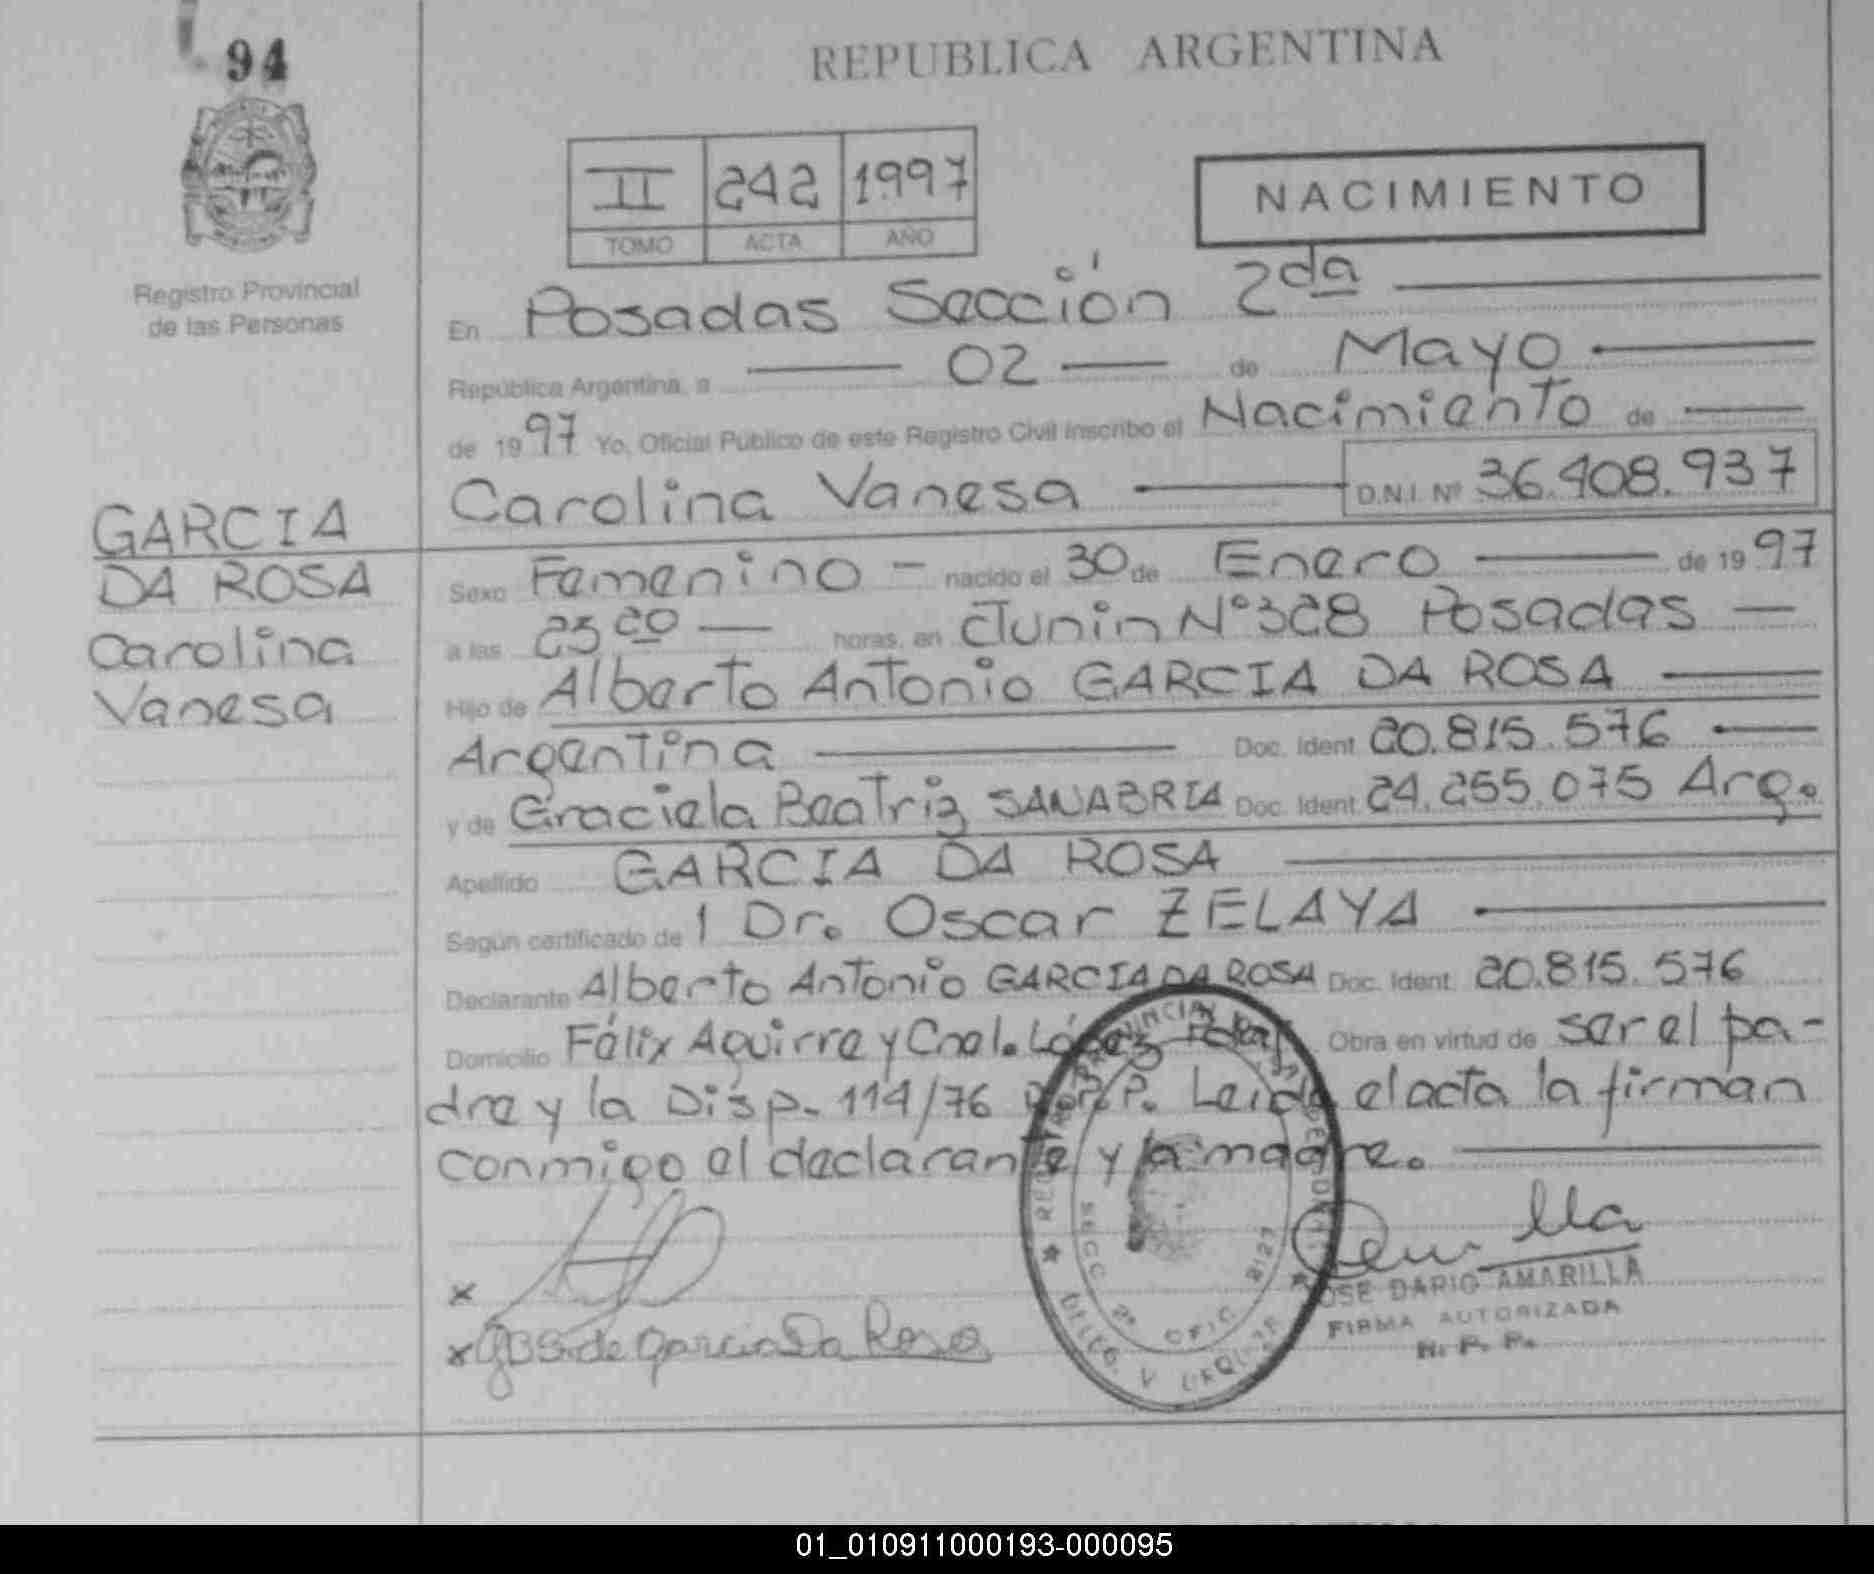 94
REPUBLICA ARGENTINA
II 242 1997
TOMO ACTA AÑO
NACIMIENTO
Registro Provincial
de las Personas
En Posadas Sección 2da
República Argentina, a 02 de Mayo
de 1997 Yo, Oficial Público de este Registro Civil inscribo el Nacimiento de
Carolina Vanesa D.N.I. Nº 36.408.937
GARCIA
DA ROSA
Carolina
Vanesa
Sexo Femenino - nacido el 30 de Enero de 1997
a las 23 20 horas, en Junin Nº 328 Posadas
Hijo de Alberto Antonio GARCIA DA ROSA
Argentina Doc. Ident. 20.815.576
y de Graciela Beatriz SANABRIA Doc. Ident. 24.255.075 Arg.
Apellido GARCIA DA ROSA
Según certificado de 1 Dr. Oscar ZELAYA
Declarante Alberto Antonio GARCIA DA ROSA Doc. Ident. 20.815.576
Domicilio Félix Aguirre y Cnel. López Obra en virtud de ser el pa-
dre y la Disp. 114/76 Leida el acta la firman
conmigo el declarante y la madre.
x
x GBS. de Garcia Da Rosa
SECC 2ª OFIC
JOSE DARIO AMARILLA
FIRMA AUTORIZADA
R. P. P.
01_010911000193-000095